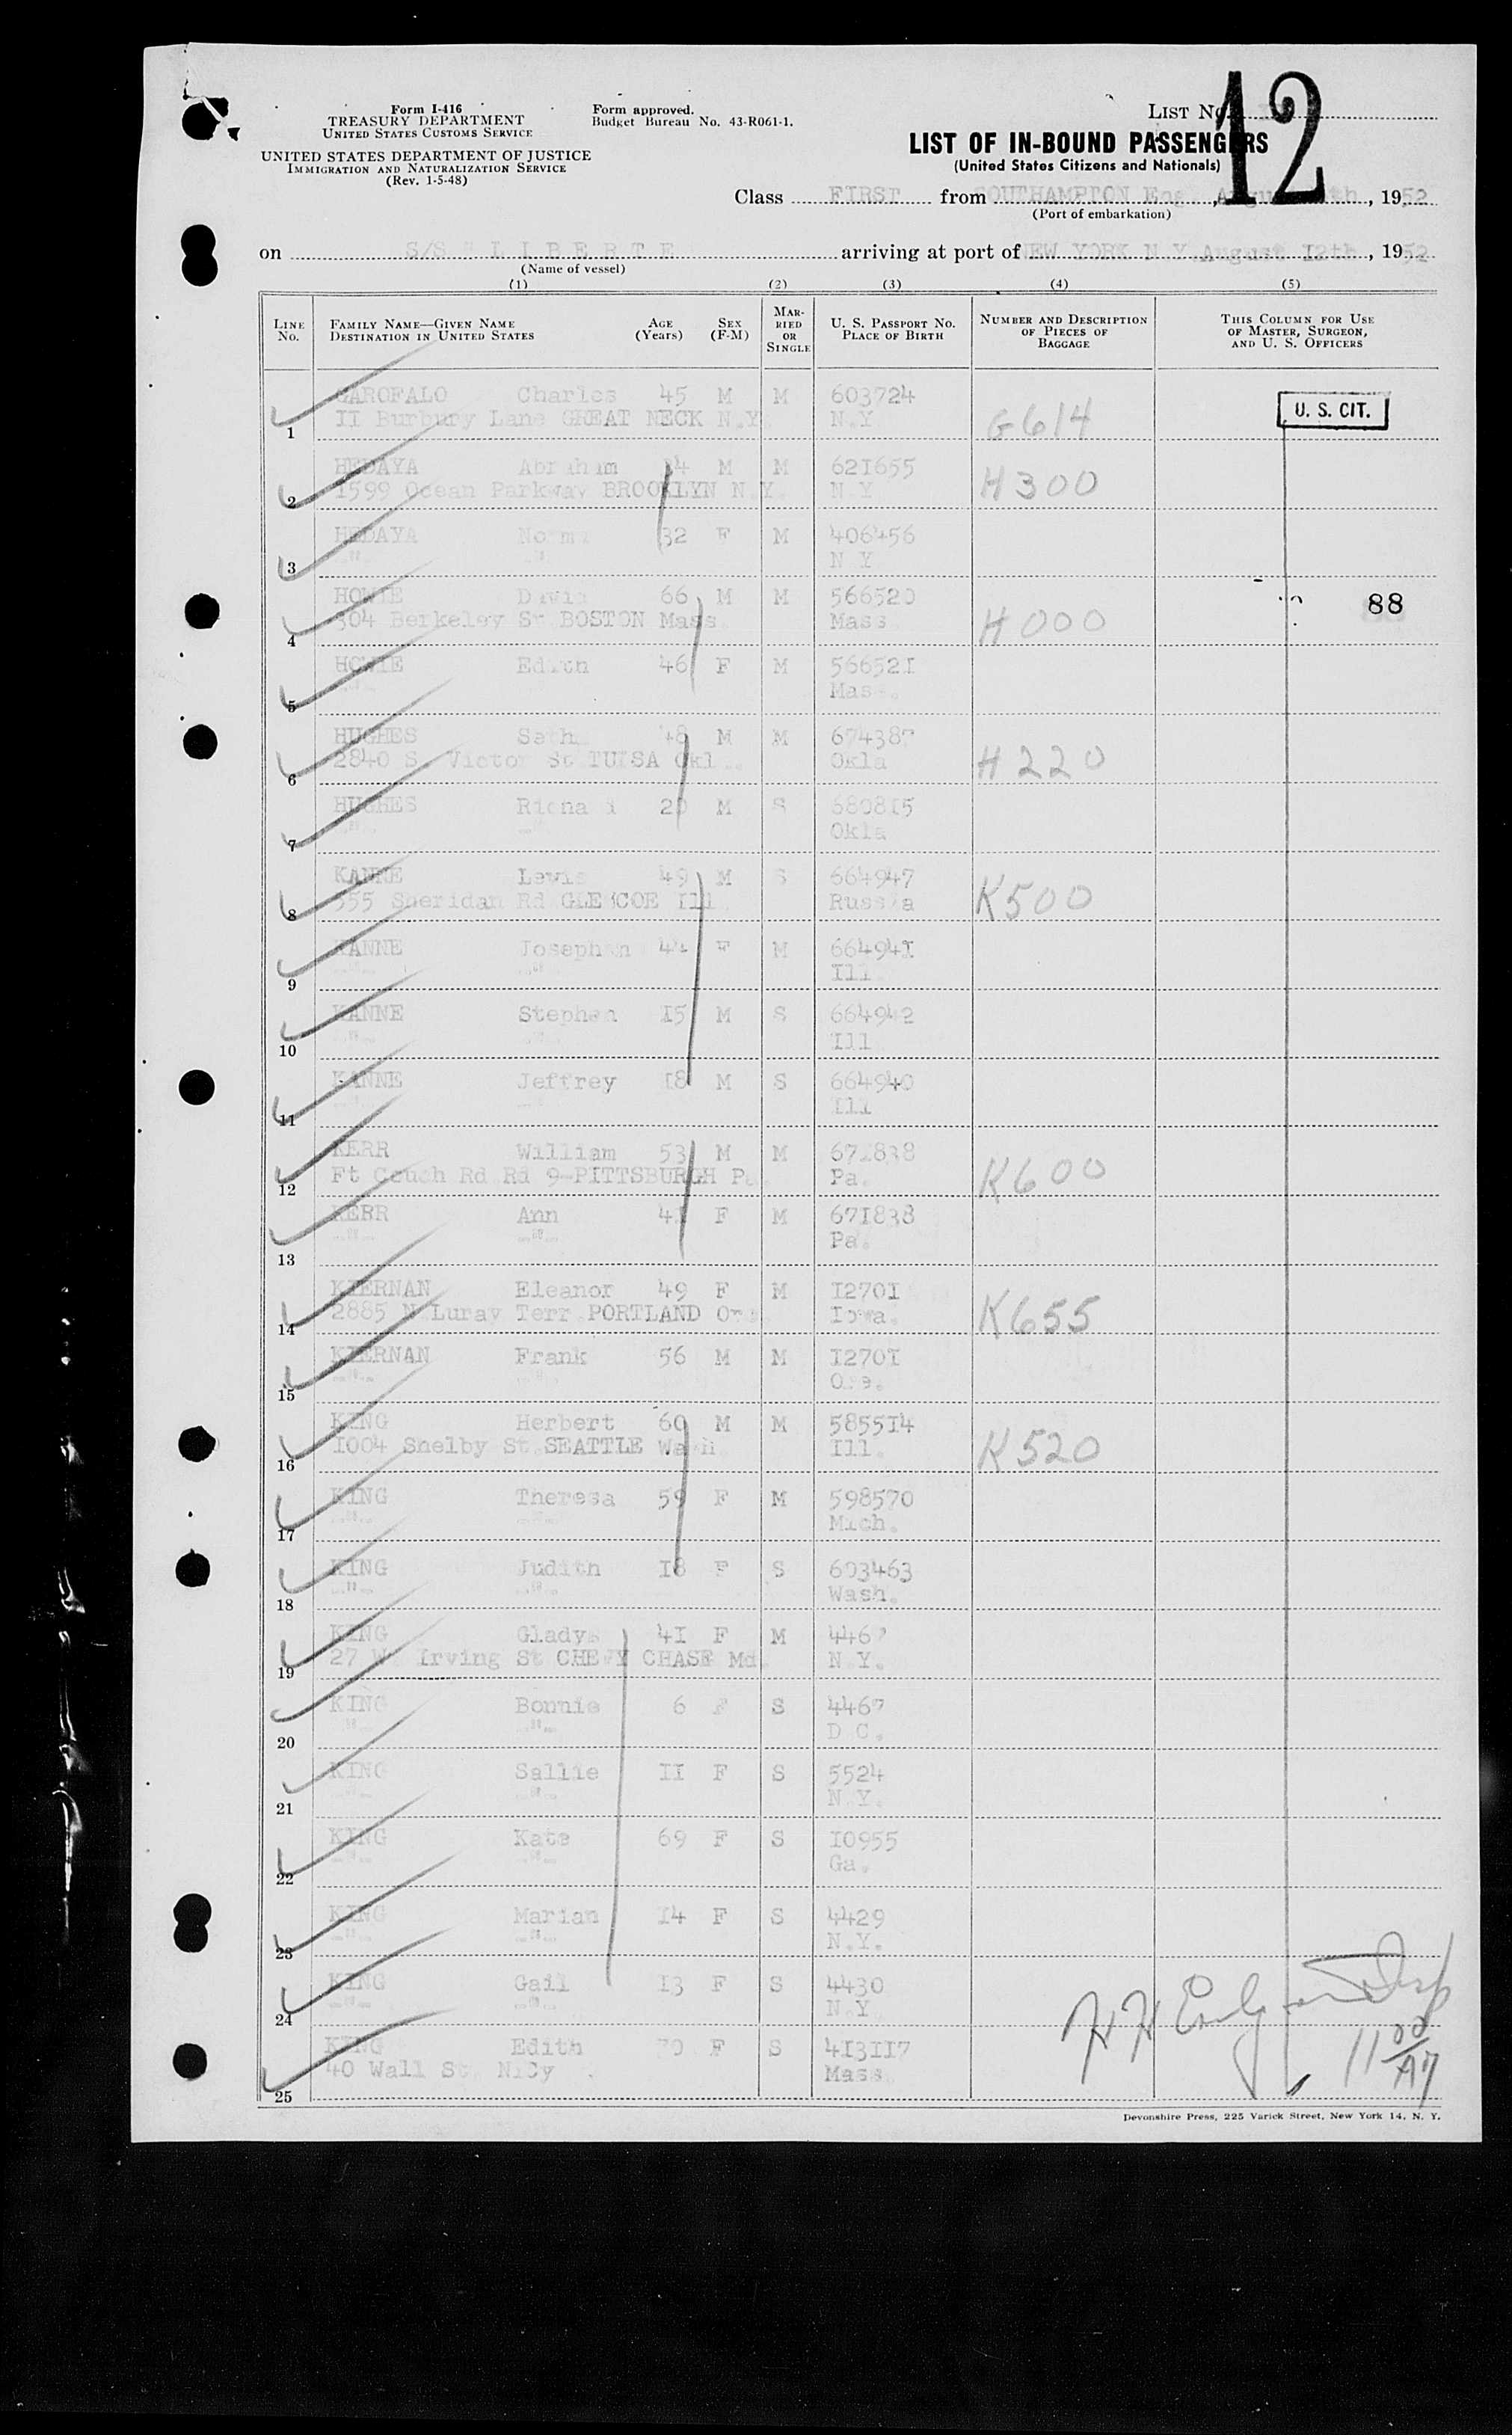 Form I-416
TREASURY DEPARTMENT
UNITED STATES CUSTOMS SERVICE
UNITED STATES DEPARTMENT OF JUSTICE
IMMIGRATION AND NATURALIZATION SERVICE
(Rev. 1-5-48)
Form approved.
Budget Bureau No. 43-R061-1.
LIST No.
12
LIST OF IN-BOUND PASSENGERS
(United States Citizens and Nationals)
Class FIRST from SOUTHAMPTON Eng. , 1952
(Port of embarkation)
on S/S LIBERTE arriving at port of NEW YORK N Y August 12th, 1952
(Name of vessel)
(1) (2) (3) (4) (5)
LINE No. FAMILY NAME—GIVEN NAME DESTINATION IN UNITED STATES AGE (Years) SEX (F-M) MARRIED OR SINGLE U. S. PASSPORT NO. PLACE OF BIRTH NUMBER AND DESCRIPTION OF PIECES OF BAGGAGE THIS COLUMN FOR USE OF MASTER, SURGEON, AND U. S. OFFICERS
GAROFALO Charles 45 M M 603724
U. S. CIT.
1 II Burbury Lane GREAT NECK N.Y. N.Y G614
HEDAYA Abraham 34 M M 621655
2 1599 Ocean Parkway BROOKLYN N.Y. N Y H300
HEDAYA Norma 32 F M 406456
3 " " N Y
HOWIE David 66 M M 566520
88
4 304 Berkeley St BOSTON Mass Mass H000
HOWIE Edith 46 F M 566521
5 Mass.
HUGHES Seth 48 M M 674387
6 2840 S. Victor St TULSA Okl Okla H220
HUGHES Richa d 20 M S 680815
7 " Okla
KANNE Lewis 49 M S 664947
8 555 Sheridan Rd GLENCOE Ill Russia K500
KANNE Josephin 44 F M 664941
9 " " Ill
KANNE Stephen 15 M S 664942
10 " " Ill
KANNE Jeffrey 18 M S 664940
11 Ill
KERR William 53 M M 671838
12 Ft Couch Rd Rd 9-PITTSBURGH Pa Pa. K600
KERR Ann 41 F M 671838
13 " " Pa.
KIERNAN Eleanor 49 F M 12701
14 2885 N Luray Terr. PORTLAND Ore Iowa. K655
KIERNAN Frank 56 M M 12701
15 " " Ore.
KING Herbert 60 M M 585514
16 1004 Shelby St SEATTLE Wash Ill. K520
KING Theresa 59 F M 598570
17 " " Mich.
KING Judith 18 F S 603463
18 " " Wash.
KING Gladys 41 F M 4467
19 27 W. Irving St CHEVY CHASE Md. N.Y.
KING Bonnie 6 F S 4467
20 " " D C.
KING Sallie 11 F S 5524
21 " " N.Y.
KING Kate 69 F S 10955
22 " " Ga.
KING Marian 14 F S 4429
23 " " N.Y.
KING Gail 13 F S 4430
24 " " N.Y
KING Edith 70 F S 413117
25 40 Wall St. NICy Mass
11 00/AM
Devonshire Press, 225 Varick Street, New York 14, N. Y.